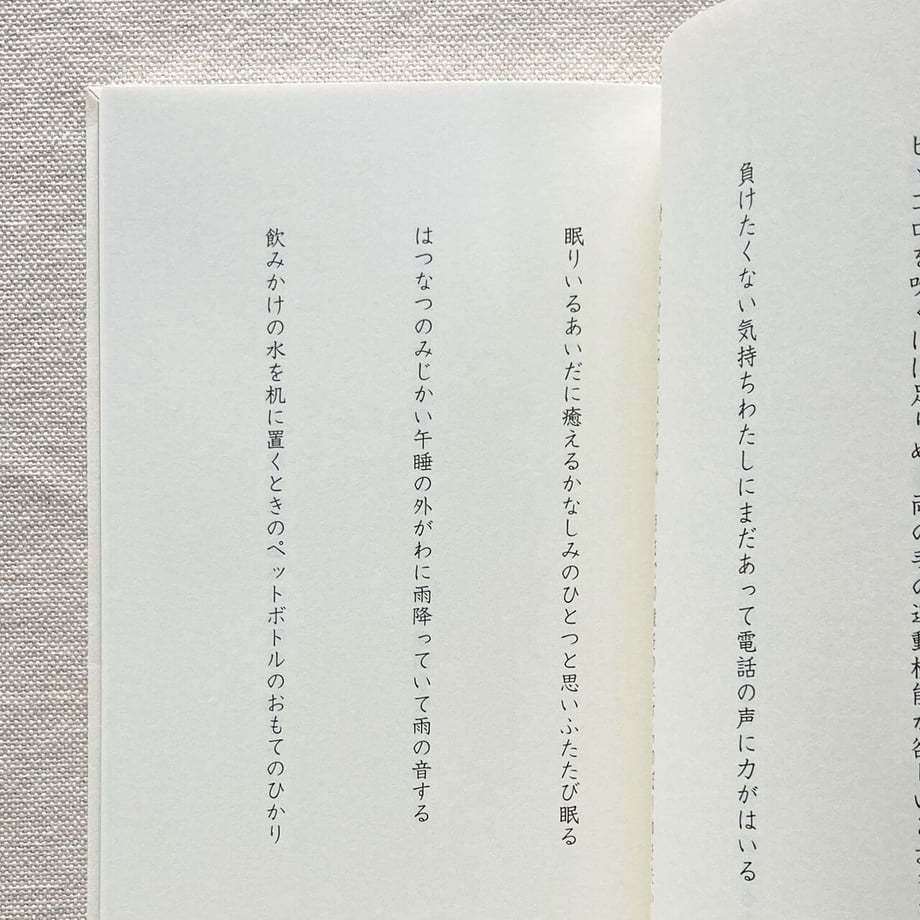 負けたくない気持ちわたしにまだあって電話の声に力がはいる
眠りいるあいだに癒えるかなしみのひとつと思いふたたび眠る
はつなつのみじかい午睡の外がわに雨降っていて雨の音する
飲みかけの水を机に置くときのペットボトルのおもてのひかり